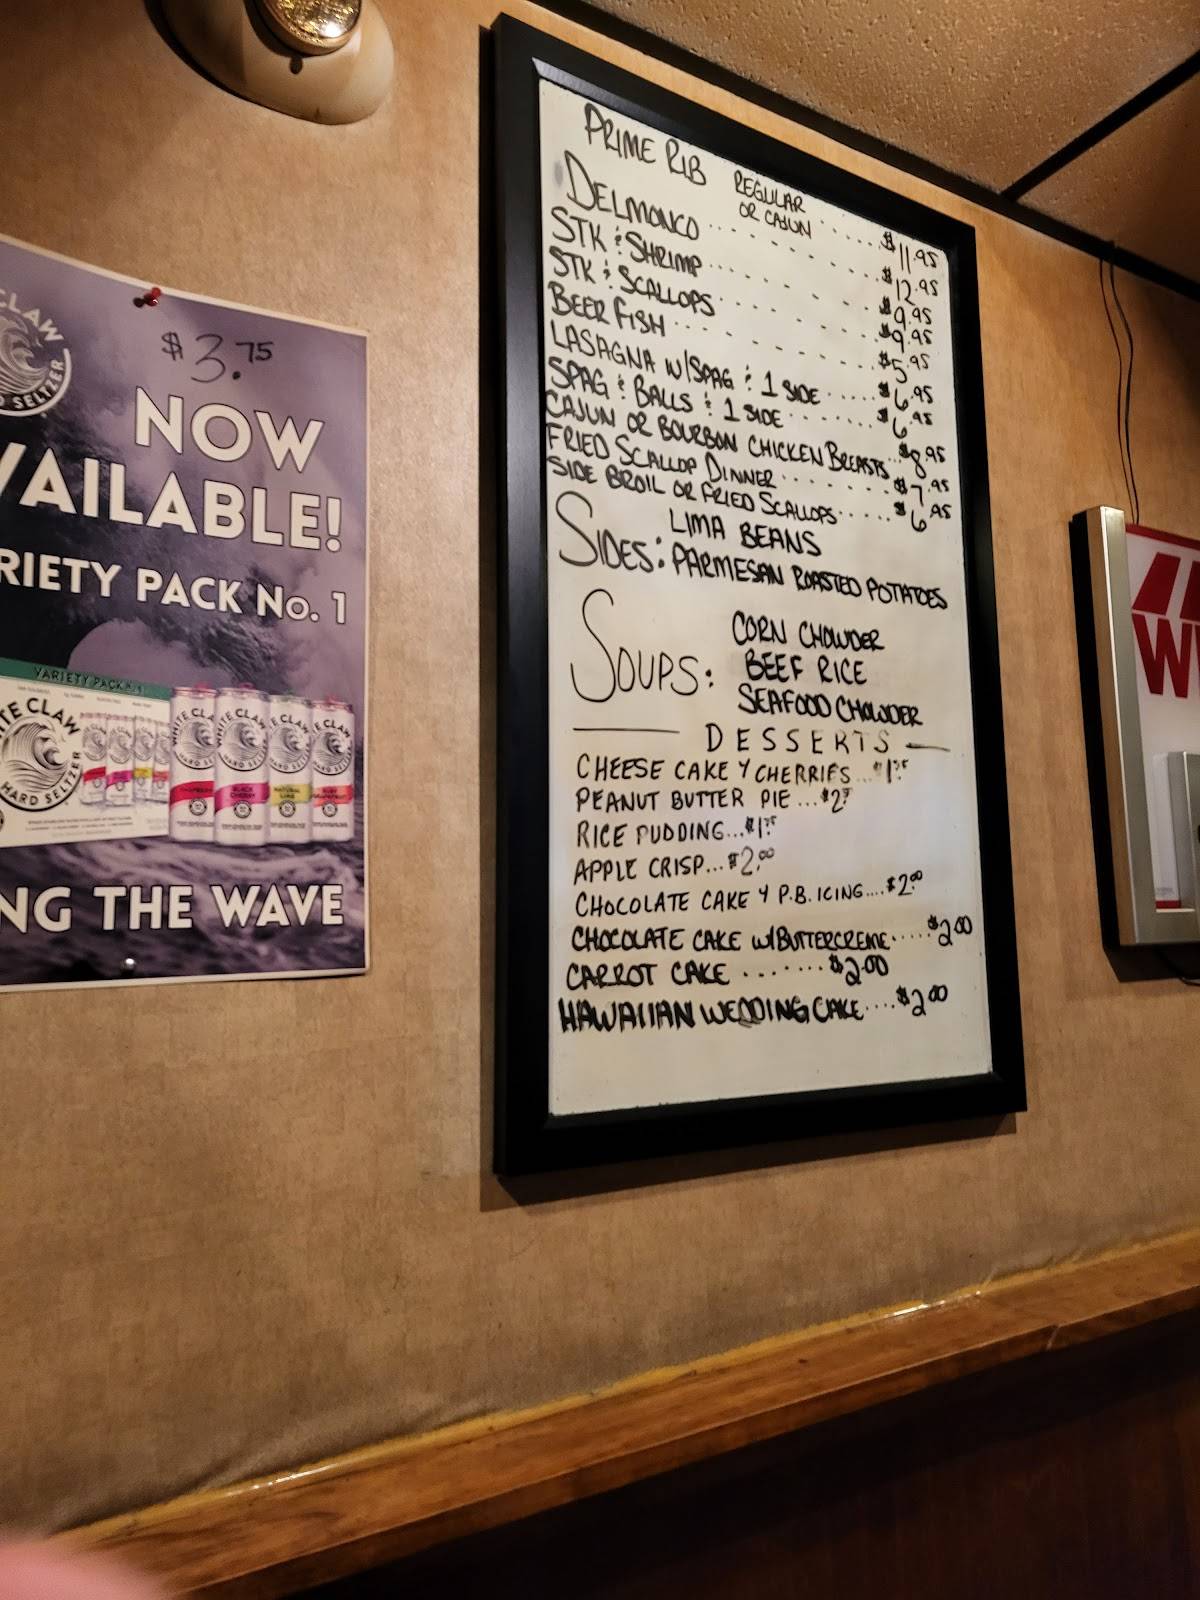 CLAW
HARD SELTZER
$3.75
NOW
AVAILABLE!
VARIETY PACK No. 1
VARIETY PACK
WHITE CLAW
HARD SELTZER
WHITE CLAW
HARD SELTZER
BLACK CHERRY
NATURAL LIME
RUBY GRAPEFRUIT
NG THE WAVE
PRIME RIB REGULAR OR CAJUN ..... $11.95
DELMONCO ........ $12.95
STK & SHRIMP ........ $9.95
STK & SCALLOPS ....... $9.95
BEER FISH ........ $5.95
LASAGNA W/SPAG & 1 SIDE ..... $6.95
SPAG & BALLS & 1 SIDE ...... $6.95
CAJUN OR BOURBON CHICKEN BREASTS... $8.95
FRIED SCALLOP DINNER ........ $7.95
SIDE BROIL OR FRIED SCALLOPS ..... $6.95
SIDES: LIMA BEANS
PARMESAN ROASTED POTATOES
SOUPS: CORN CHOWDER
BEEF RICE
SEAFOOD CHOWDER
DESSERTS
CHEESE CAKE Y CHERRIES... $1.75
PEANUT BUTTER PIE...
RICE PUDDING... $1.75
APPLE CRISP... $2.00
CHOCOLATE CAKE Y P.B. ICING.... $2.00
CHOCOLATE CAKE W/BUTTERCREME..... $2.00
CARROT CAKE ....... $2.00
HAWAIIAN WEDDING CAKE.... $2.00
W